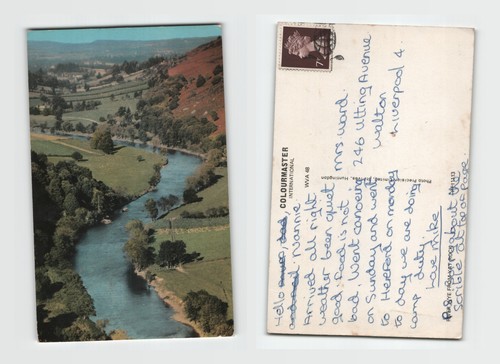 Hello mum, dad,
and Nannie
Arrived all right
weather been quiet
good. Food is not
bad, Went canoeing
on Sunday and went
to Hereford on monday
to day we are doing
camp duty.
Love mike
P.S. about the
scrible at page.
mrs ward.
246 Utting Avenue
walton
Liverpool 4
COLOURMASTER
INTERNATIONAL
WVA 48
Photo Precision Limited, Huntingdon
7P